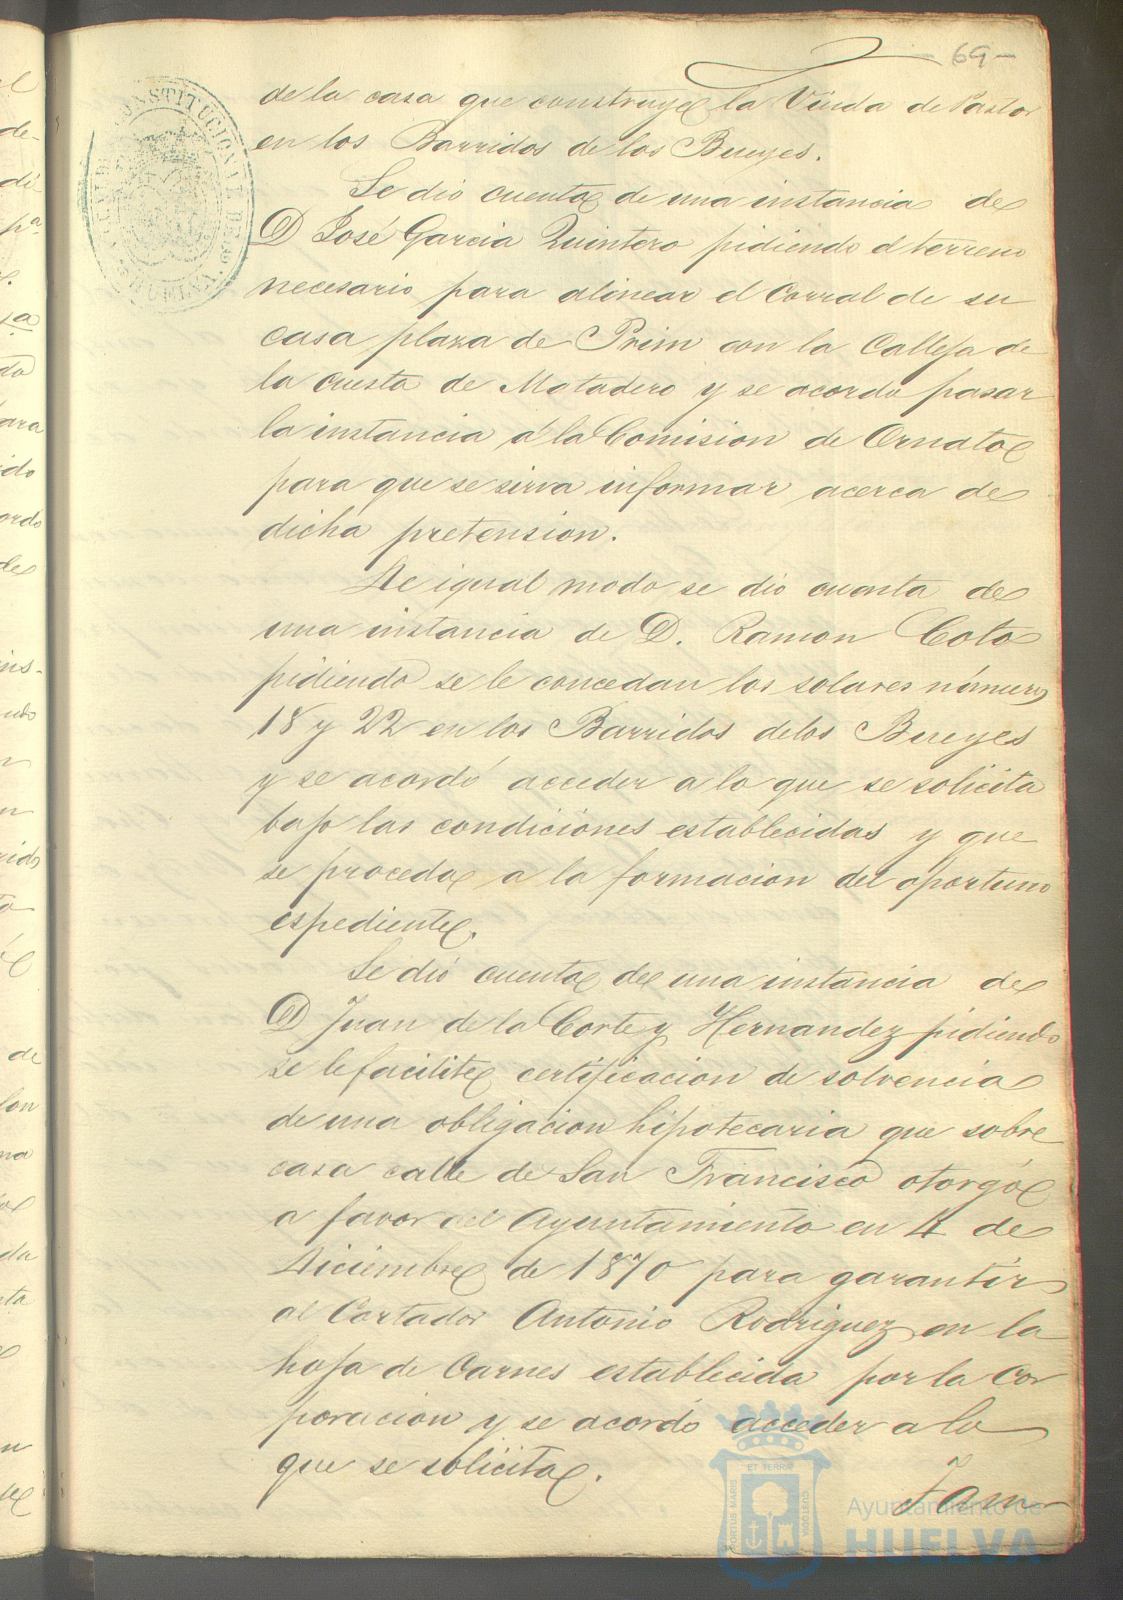 - 69 -
de la casa que construye la Viuda de Pastor
en los Barridos de los Bueyes.
Se dio cuenta de una instancia de
D José Garcia Quintero pidiendo el terreno
necesario para alinear el Corral de su
casa plaza de Prim con la Calleja de
la cuesta de Matadero y se acordo pasar
la instancia á la Comision de Ornato
para que se sirva informar acerca de
dicha pretension.
De igual modo se dio cuenta de
una instancia de D. Ramon Coto
pidiendo se le concedan los solares números
18 y 22 en los Barridos de los Bueyes
y se acordó acceder a lo que se solicita
bajo las condiciones establecidas y que
se proceda a la formacion del oportuno
espediente.
Se dió cuenta de una instancia de
D Juan de la Corte y Hernandez pidiendo
se le facilite certificacion de solvencia
de una obligacion hipotecaria que sobre
casa calle de San Francisco otorgó
a favor del Ayuntamiento en 4 de
Diciembre de 1870 para garantir
al Cortador Antonio Rodriguez en la
hoja de Carnes establecida por la Cor
poracion y se acordo acceder a lo
que se solicita.
Tam-
CONSTITUCIONAL DE
PORTUS MARIS ET TERRÆ CUSTODIA
Ayuntamiento de
HUELVA